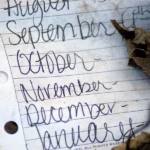 August
September
October-
November-
December-
January